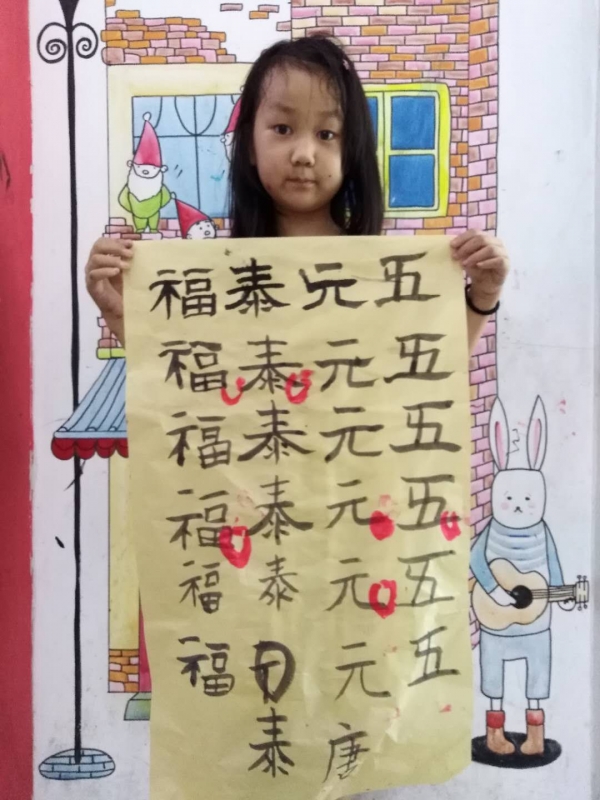 福泰元五
福泰元五
福泰元五
福泰元五
福泰元五
福元五
泰唐